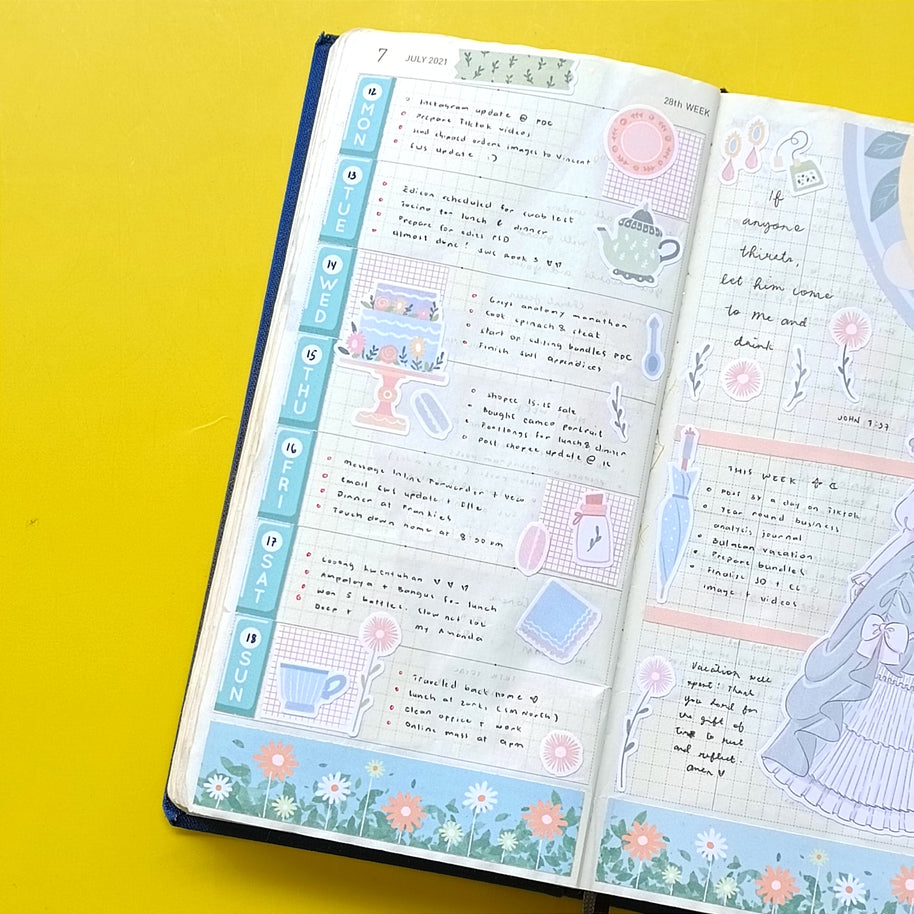 7 JULY 2021
28th WEEK
12 MON
Instagram update @ POC
Prepare Tiktok videos
Send shipped orders images to Vincent
SWS update :)
13 TUE
Edison scheduled for swab test
Tocino for lunch & dinner
Prepare for edits PLD
Almost done! SWS Book 3 ♡♡
14 WED
Greys anatomy marathon
Cook spinach & steak
Start on editing bundles POC
Finish SWS appendices
15 THU
Shopee 15.15 sale
Bought cameo portrait
for lunch & dinner
Post shopee update @ 12
16 FRI
Message Inline Forwarder + Veco
Email SWS update + Elle
Dinner at Frankies
Touch down home at 8:30 pm
17 SAT
Losong kwentuhan ♡ ♡ ♡
Ampalaya + Bangus for lunch
Won 5 bottles. Slow not
my Amanda
18 SUN
Traveled back home ♡
Lunch at (SM North)
Clean office + work
Online mass at 9pm
If
anyone
thirsts,
let him come
to me and
drink
JOHN 7:37
THIS WEEK:
Post 3x a day on Tiktok
Year round business
analysis journal
Bulacan vacation
Prepare bundles
Finalize SO + EC
image + videos
Vacation well
spent! Thank
you Lord for
the gift of
time to rest
and reflect.
Amen ♡